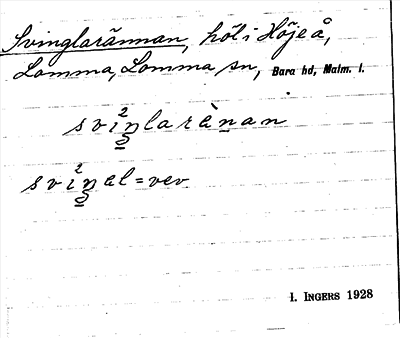 Svinglarännan, höl i Höje å,
Lomma, Lomma sn, Bara hd, Malm. l.
svi²ŋlarὲnan
svi²ŋel = vev
I. INGERS 1928